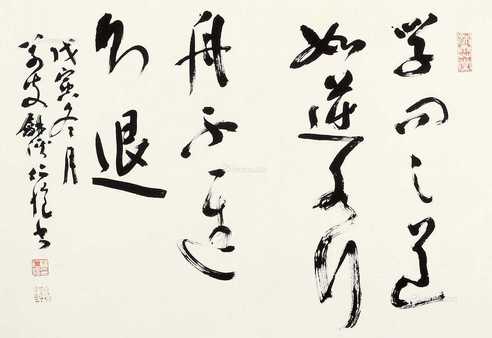 学问之道
如逆水行
舟不进
则退
戊寅冬月